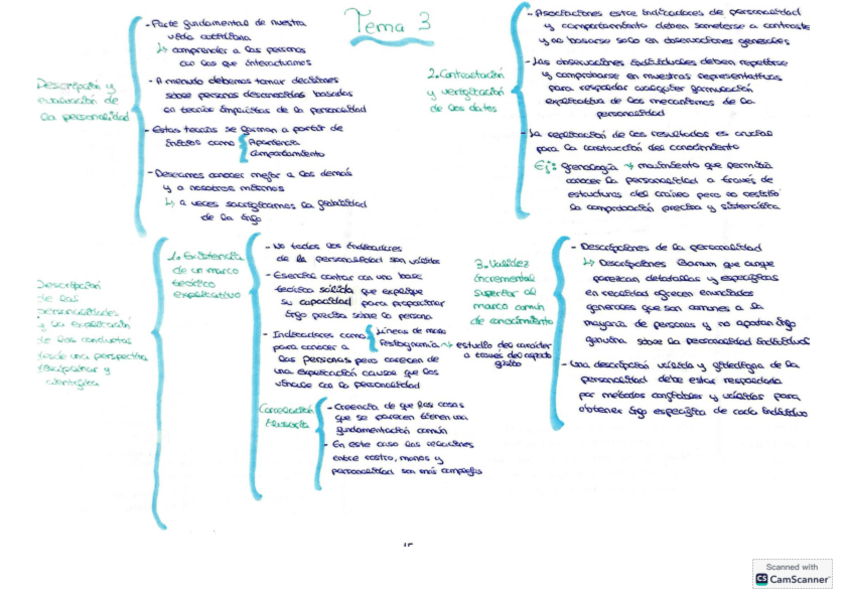 Tema 3
Descripción y
evaluación de
la personalidad
- Parte fundamental de nuestra
vida cotidiana
↳ comprender a las personas
con las que interactuamos
- A menudo debemos tomar decisiones
sobre personas desconocidas basadas
en teorías implícitas de la personalidad
- Estas teorías se forman a partir de
indicios como Apariencia
Comportamiento
- Deseamos conocer mejor a los demás
y a nosotros mismos
↳ a veces sacrificamos la fiabilidad
de la info
Descripción
de las
personalidades
y su explicación
de las conductas
desde una perspectiva
disciplinar y
científica
1. Existencia
de un marco
teórico
explicativo
- No todos los indicadores
de la personalidad son válidos
- Esencial contar con una base
teórica sólida que explique
su capacidad para proporcionar
info precisa sobre la persona
- Indicadores como Líneas de mano
Fisiognomía → estudio del carácter
a través del aspecto
físico
para conocer a
las personas pero carecen de
una explicación causal que los
vincule con la personalidad
Correlación
ilusoria
- Creencia de que las cosas
que se parecen tienen una
fundamentación común
- En este caso las relaciones
entre rostro, manos y
personalidad son más complejas
2. Contrastación
y verificación
de los datos
- Asociaciones entre indicadores de personalidad
y comportamiento deben someterse a contraste
y no basarse solo en observaciones generales
- Las observaciones individuales deben repetirse
y comprobarse en muestras representativas
para respaldar cualquier formulación
explicativa de los mecanismos de la
personalidad
- La replicación de los resultados es crucial
para la construcción del conocimiento
Ej: frenología → movimiento que permitía
conocer la personalidad a través de
estructuras del cráneo pero no resistió
la comprobación precisa y sistemática
3. Validez
incremental
superior al
marco común
de conocimiento
- Descripciones de la personalidad
↳ Descripciones Barnum que aunque
parezcan detalladas y específicas
en realidad ofrecen enunciados
generales que son comunes a la
mayoría de personas y no aportan info
genuina sobre la personalidad individual
- Una descripción válida y fidedigna de la
personalidad debe estar respaldada
por métodos confiables y válidos para
obtener info específica de cada individuo
15
Scanned with
CS CamScanner